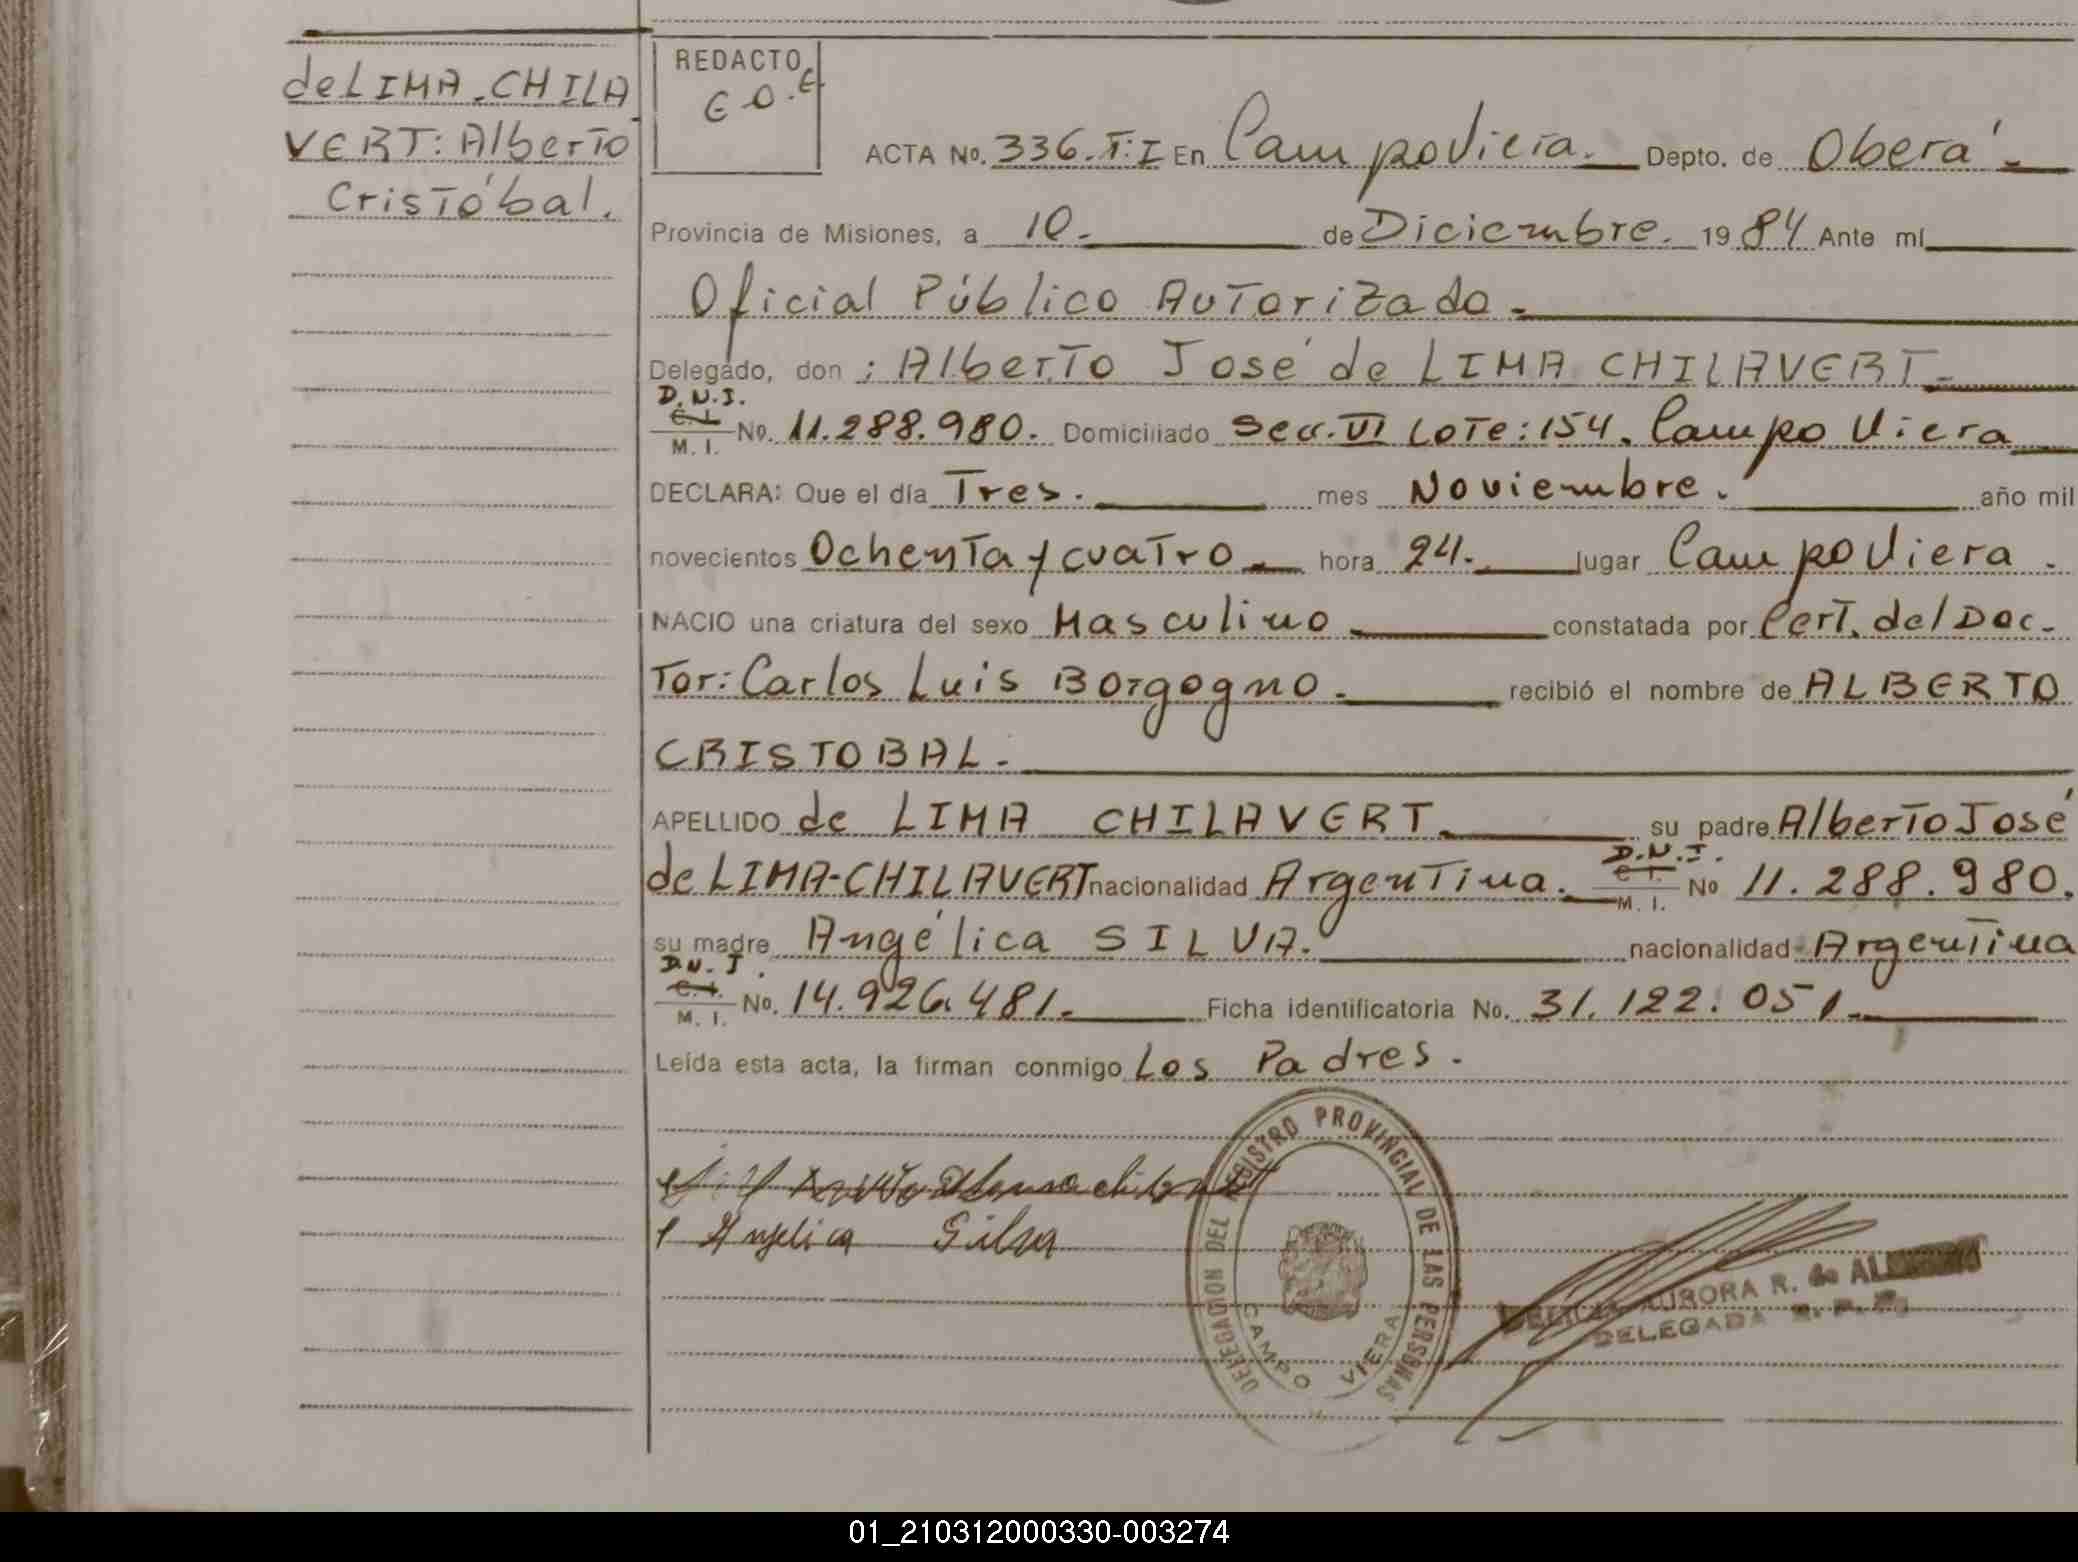 de LIMA-CHILA
VERT: Alberto
Cristóbal.
REDACTO
E O. E
ACTA No. 336. T: I En Campo Viera. Depto. de Oberá.
Provincia de Misiones, a 10. de Diciembre. 1984 Ante mí
Oficial Público Autorizado.
Delegado, don : Alberto José de LIMA CHILAVERT.
D.N.I.
C. I.
M. I.
No. 11.288.980. Domiciliado Secc. VI Lote: 154. Campo Viera
DECLARA: Que el día Tres. mes Noviembre. año mil
novecientos Ochenta y cuatro. hora 24. lugar Campo Viera.
NACIO una criatura del sexo Masculino constatada por Cert. del Doc-
tor: Carlos Luis Borgogno. recibió el nombre de ALBERTO
CRISTOBAL.
APELLIDO de LIMA CHILAVERT. su padre Alberto José
D.N.I.
de LIMA-CHILAVERT nacionalidad Argentina. C. I. No 11.288.980.
M. I.
su madre Angélica SILVA. nacionalidad Argentina
D.N.I.
C. I.
M. I.
No. 14.926.481. Ficha identificatoria No. 31.122.051.
Leída esta acta, la firman conmigo Los Padres.
Angelica Silva
DELEGACION DEL REGISTRO PROVINCIAL DE LAS PERSONAS
CAMPO VIERA
AURORA R. de
DELEGADA R. P. P.
01_210312000330-003274